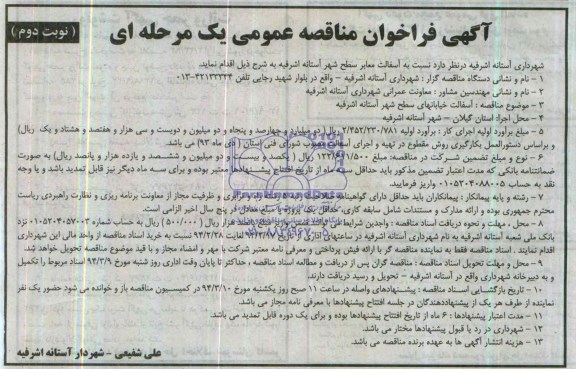 آگهی فراخوان مناقصه عمومی یک مرحله ای
( نوبت دوم )
شهرداری آستانه اشرفیه درنظر دارد نسبت به آسفالت معابر سطح شهر آستانه اشرفیه به شرح ذیل اقدام نماید.
۱ - نام و نشانی دستگاه مناقصه گزار : شهرداری آستانه اشرفیه - واقع در بلوار شهید رجایی تلفن ۴۲۱۳۳۳۳۴-۰۱۳
۲ - نام و نشانی مهندسین مشاور : معاونت عمرانی شهرداری آستانه اشرفیه
۳ - موضوع مناقصه : آسفالت خیابانهای سطح شهر آستانه اشرفیه
۴ - محل اجرا: استان گیلان - شهر آستانه اشرفیه
۵ - مبلغ برآورد اولیه اجرای کار : برآورد اولیه ۲/۴۵۲/۲۳۰/۷۸۱ ریال ( دو میلیارد و چهارصد و پنجاه و دو میلیون و دویست و سی هزار و هفتصد و هشتاد و یک ریال)
و براساس دستورالعمل بکارگیری روش مقطوع در تهیه و اجرای آسفالت مصوب شورای فنی استان ( دی ماه ۹۳) می باشد.
۶ - نوع و مبلغ تضمین شرکت در مناقصه: مبلغ ریال ( یکصد و بیست و دو میلیون و ششصد و یازده هزار و پانصد ریال) به صورت
ضمانتنامه بانکی که مدت اعتبار تضمین مذکور باید حداقل سه ماه از تاریخ افتتاح پیشنهادها معتبر بوده و برای سه ماه دیگر نیز قابل تمدید باشد و یا وجه
نقد به حساب ۰۱۰۵۲۰۴۰۸۸۰۰۵ واریز فرمایید.
۷ - رشته و پایه پیمانکار : پیمانکاران باید حداقل دارای گواهینامه صلاحیت پایه ۵ رشته راه و ترابری و ظرفیت مجاز از معاونت برنامه ریزی و نظارت راهبردی ریاست
محترم جمهوری بوده و ارائه مدارک و مستندات شامل سابقه کاری، حداقل یک پروژه با مبلغ معادل در پنج سال اخیر الزامی است.
۸ - محل ، مهلت و نحوه دریافت اسناد مناقصه : واجدین شرایط هزار ریال ( ۵۰۰/۰۰۰ ) ریال به حساب شماره ۰۱۰۵۲۰۴۰۵۷۰۰۳ نزد
بانک ملی شعبه آستانه اشرفیه به نام شهرداری آستانه اشرفیه در ساعتهای اداری از تاریخ لغایت ۹۴/۲/۲۸ نسبت به خرید اسناد مناقصه از واحد مالی این شهرداری
اقدام نمایند . اسناد مناقصه فقط به نماینده مناقصه گر با ارائه فیش پرداختی و معرفی نامه معتبر شرکت با مهر و امضاء مجاز و با قید موضوع مناقصه تحویل خواهد شد.
۹ - محل و مهلت تحویل اسناد مناقصه : مناقصه گران پس از دریافت و مطالعه اسناد مناقصه ، حداکثر تا پایان وقت اداری روز شنبه مورخ ۹۴/۳/۹ اسناد مربوط را تکمیل
و به دبیرخانه شهرداری واقع در آستانه اشرفیه - تحویل و رسید دریافت دارند.
۱۰ - تاریخ بازگشایی اسناد مناقصه : پیشنهادهای واصله در ساعت ۱۱ صبح روز یکشنبه مورخ ۹۴/۳/۱۰ در کمیسیون مناقصه باز و خوانده می شود حضور یک نفر
نماینده از طرف هر یک از پیشنهاددهندگان در جلسه افتتاح پیشنهادها با معرفی نامه مجاز می باشد.
۱۱ - مدت اعتبار پیشنهادها : ۶ ماه از تاریخ افتتاح پیشنهادها بوده و برای یک دوره قابل تمدید می باشد.
۱۲ - شهرداری در رد یا قبول پیشنهادها مختار می باشد.
۱۳ - هزینه انتشار آگهی ها به عهده برنده مناقصه می باشد.
علی شفیعی - شهردار آستانه اشرفیه